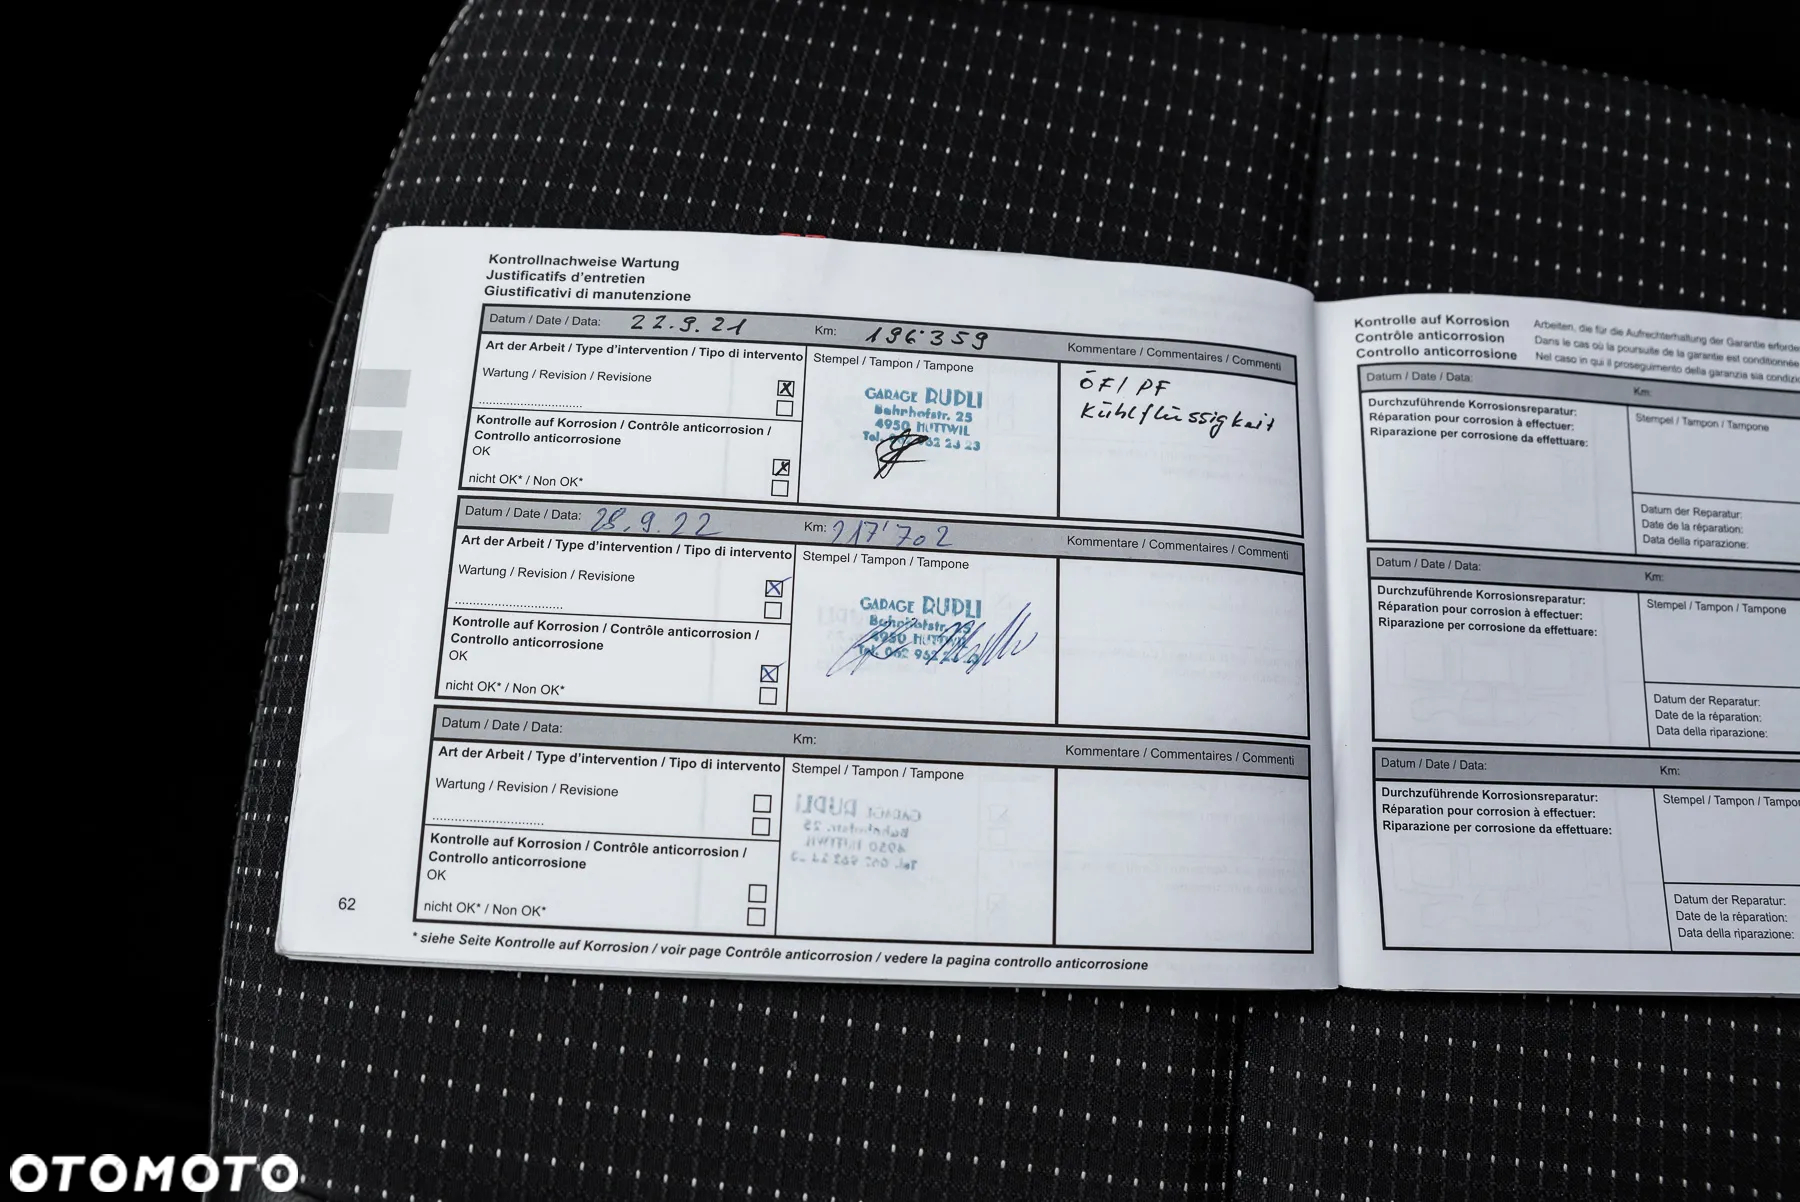 Kontrollnachweise Wartung
Justificatifs d'entretien
Giustificativi di manutenzione
Datum / Date / Data: 22.9.21 Km: 196359 Kommentare / Commentaires / Commenti
Art der Arbeit / Type d'intervention / Tipo di intervento
Wartung / Revision / Revisione
Kontrolle auf Korrosion / Contrôle anticorrosion /
Controllo anticorrosione
OK
nicht OK* / Non OK*
Stempel / Tampon / Tampone
GARAGE RUDLI
Bahnhofstr. 25
4950 HUTTWIL
Tel. 062 962 23 23
ÖF/ PF
Kühlflüssigkeit
Datum / Date / Data: 28.9.22 Km: 217'702 Kommentare / Commentaires / Commenti
Art der Arbeit / Type d'intervention / Tipo di intervento
Wartung / Revision / Revisione
Kontrolle auf Korrosion / Contrôle anticorrosion /
Controllo anticorrosione
OK
nicht OK* / Non OK*
Stempel / Tampon / Tampone
GARAGE RUDLI
Bahnhofstr. 25
4950 HUTTWIL
Tel. 062 962
Datum / Date / Data: Km: Kommentare / Commentaires / Commenti
Art der Arbeit / Type d'intervention / Tipo di intervento
Wartung / Revision / Revisione
Kontrolle auf Korrosion / Contrôle anticorrosion /
Controllo anticorrosione
OK
nicht OK* / Non OK*
Stempel / Tampon / Tampone
62
* siehe Seite Kontrolle auf Korrosion / voir page Contrôle anticorrosion / vedere la pagina controllo anticorrosione
Kontrolle auf Korrosion
Contrôle anticorrosion
Controllo anticorrosione
Arbeiten, die für die Aufrechterhaltung der Garantie
Dans le cas où la poursuite de la garantie est conditionnée
Nel caso in qui il proseguimento della garanzia sia
Datum / Date / Data: Km:
Durchzuführende Korrosionsreparatur:
Réparation pour corrosion à effectuer:
Riparazione per corrosione da effettuare:
Stempel / Tampon / Tampone
Datum der Reparatur:
Date de la réparation:
Data della riparazione:
Datum / Date / Data: Km:
Durchzuführende Korrosionsreparatur:
Réparation pour corrosion à effectuer:
Riparazione per corrosione da effettuare:
Stempel / Tampon / Tampone
Datum der Reparatur:
Date de la réparation:
Data della riparazione:
Datum / Date / Data: Km:
Durchzuführende Korrosionsreparatur:
Réparation pour corrosion à effectuer:
Riparazione per corrosione da effettuare:
Stempel / Tampon /
Datum der Reparatur:
Date de la réparation:
Data della riparazione:
OTOMOTO